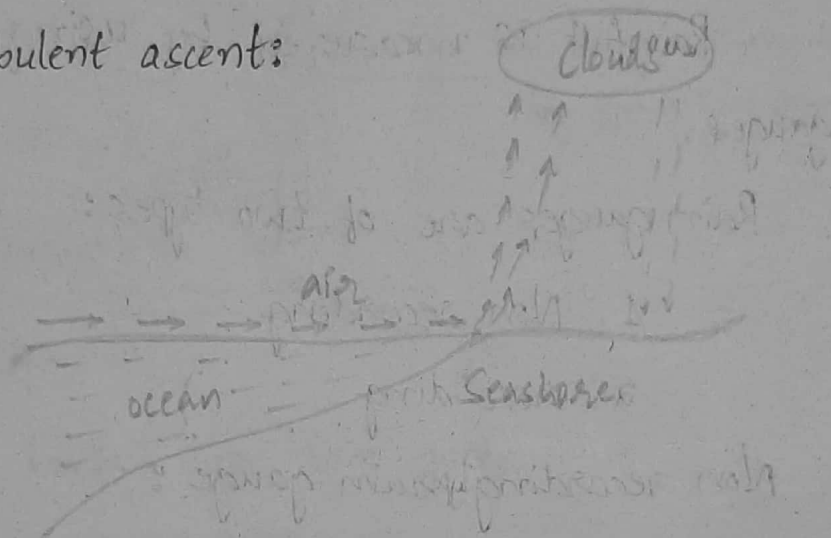 bulent ascent:
clouds
air
ocean
Seashore